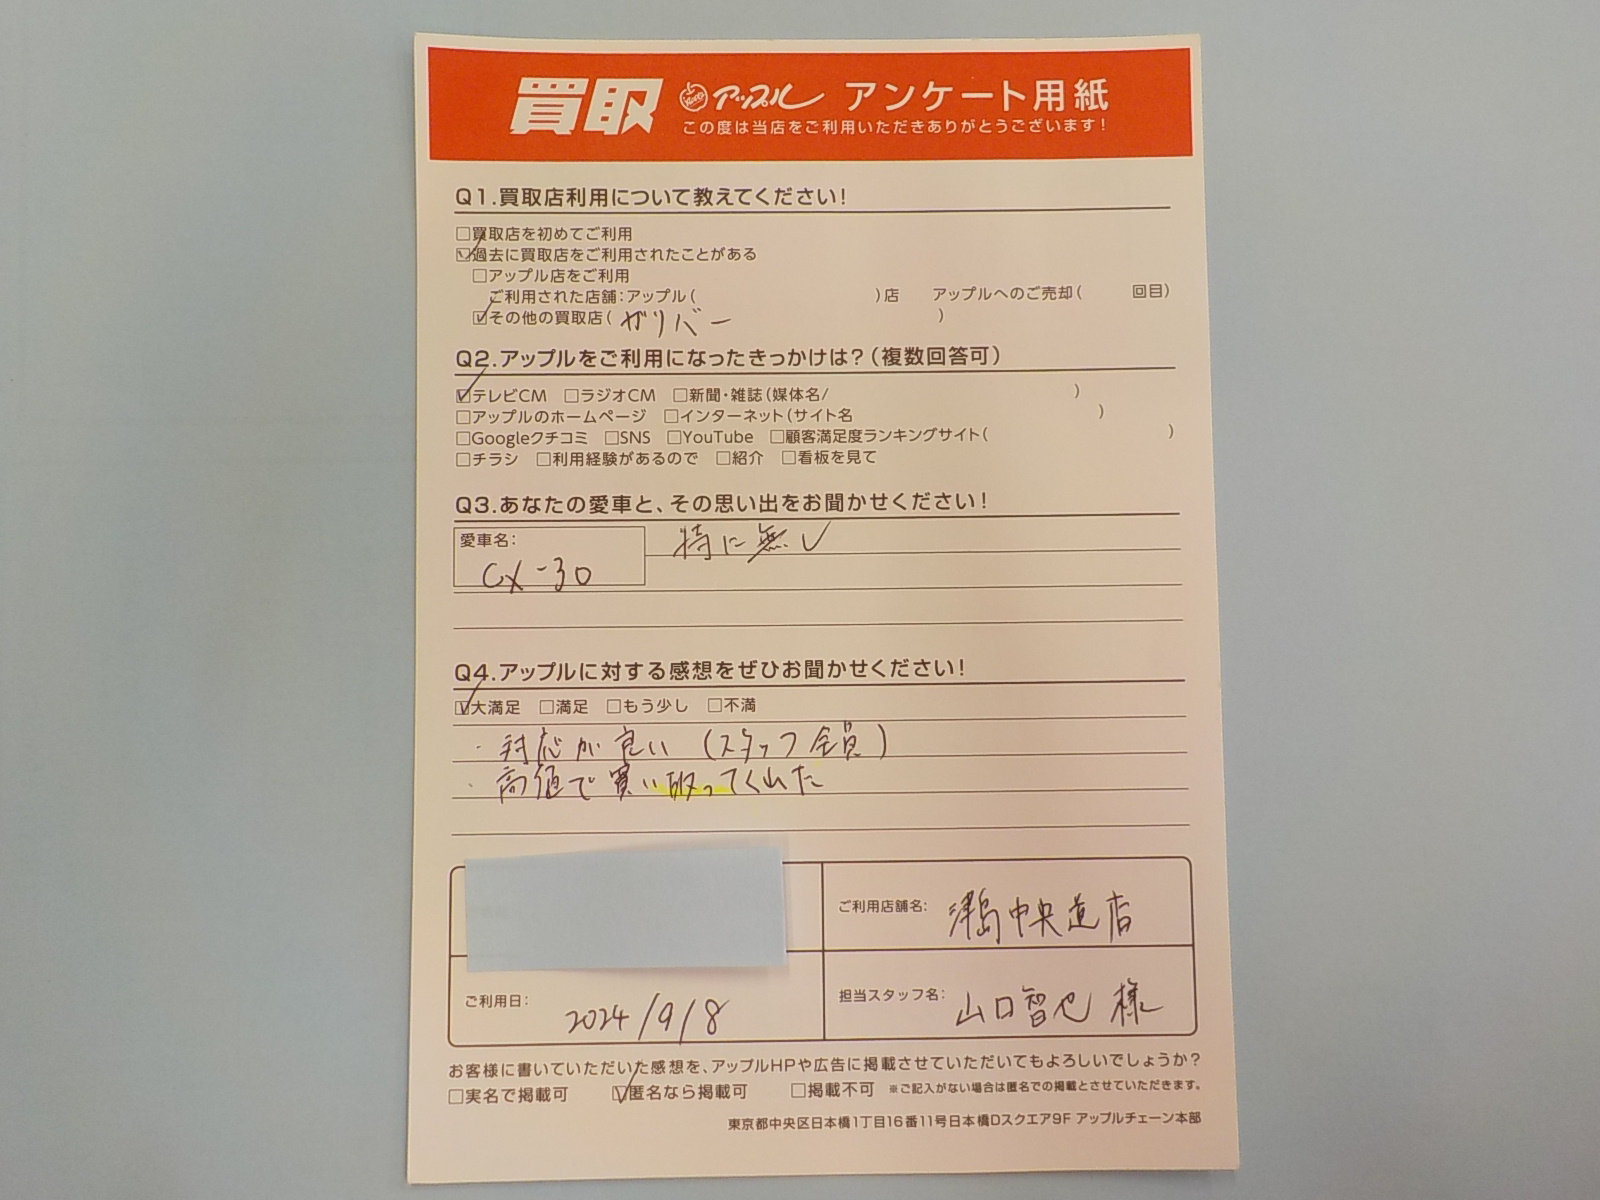 買取 アップル アンケート用紙
この度は当店をご利用いただきありがとうございます!
Q1.買取店利用について教えてください!
□買取店を初めてご利用
☑過去に買取店をご利用されたことがある
□アップル店をご利用
ご利用された店舗:アップル( )店 アップルへのご売却( 回目)
☑その他の買取店( ガリバー )
Q2.アップルをご利用になったきっかけは?(複数回答可)
☑テレビCM □ラジオCM □新聞・雑誌(媒体名/ )
□アップルのホームページ □インターネット(サイト名 )
□Googleクチコミ □SNS □YouTube □顧客満足度ランキングサイト( )
□チラシ □利用経験があるので □紹介 □看板を見て
Q3.あなたの愛車と、その思い出をお聞かせください!
愛車名: 特に無し
CX-30
Q4.アップルに対する感想をぜひお聞かせください!
☑大満足 □満足 □もう少し □不満
・対応が良い(スタッフ全員)
・高値で買い取ってくれた
ご利用店舗名: 津島中央道店
ご利用日: 2024/9/8
担当スタッフ名: 山口智也 様
お客様に書いていただいた感想を、アップルHPや広告に掲載させていただいてもよろしいでしょうか?
□実名で掲載可 ☑匿名なら掲載可 □掲載不可 ※ご記入がない場合は匿名での掲載とさせていただきます。
東京都中央区日本橋1丁目16番11号日本橋Dスクエア9F アップルチェーン本部